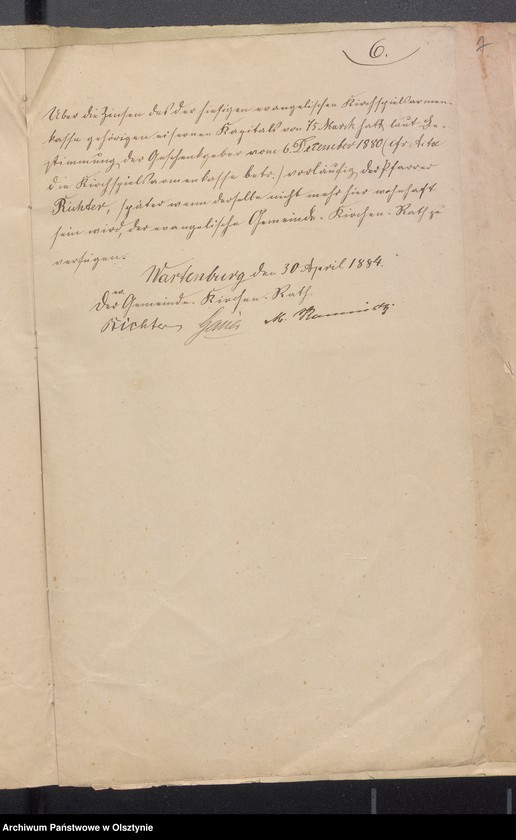 6.
7
Über die Zinsen des der hiesigen evangelischen Kirchspielsarmen-
kasse gehörigen eisernen Kapitals von 75 Mark hat laut Be-
stimmung der Geschenkgeber vom 6. Dezember 1880 (cfr. Acta
die Kirchspielsarmenkasse betr.) vorläufig der Pfarrer
Richter, später wenn derselbe nicht mehr hier wohnhaft
sein wird, der evangelische Gemeinde-Kirchen-Rath zu
verfügen.
Wartenburg den 30 April 1884.
Der ev. Gemeinde-Kirchen-Rath.
Richter M.
Archiwum Państwowe w Olsztynie